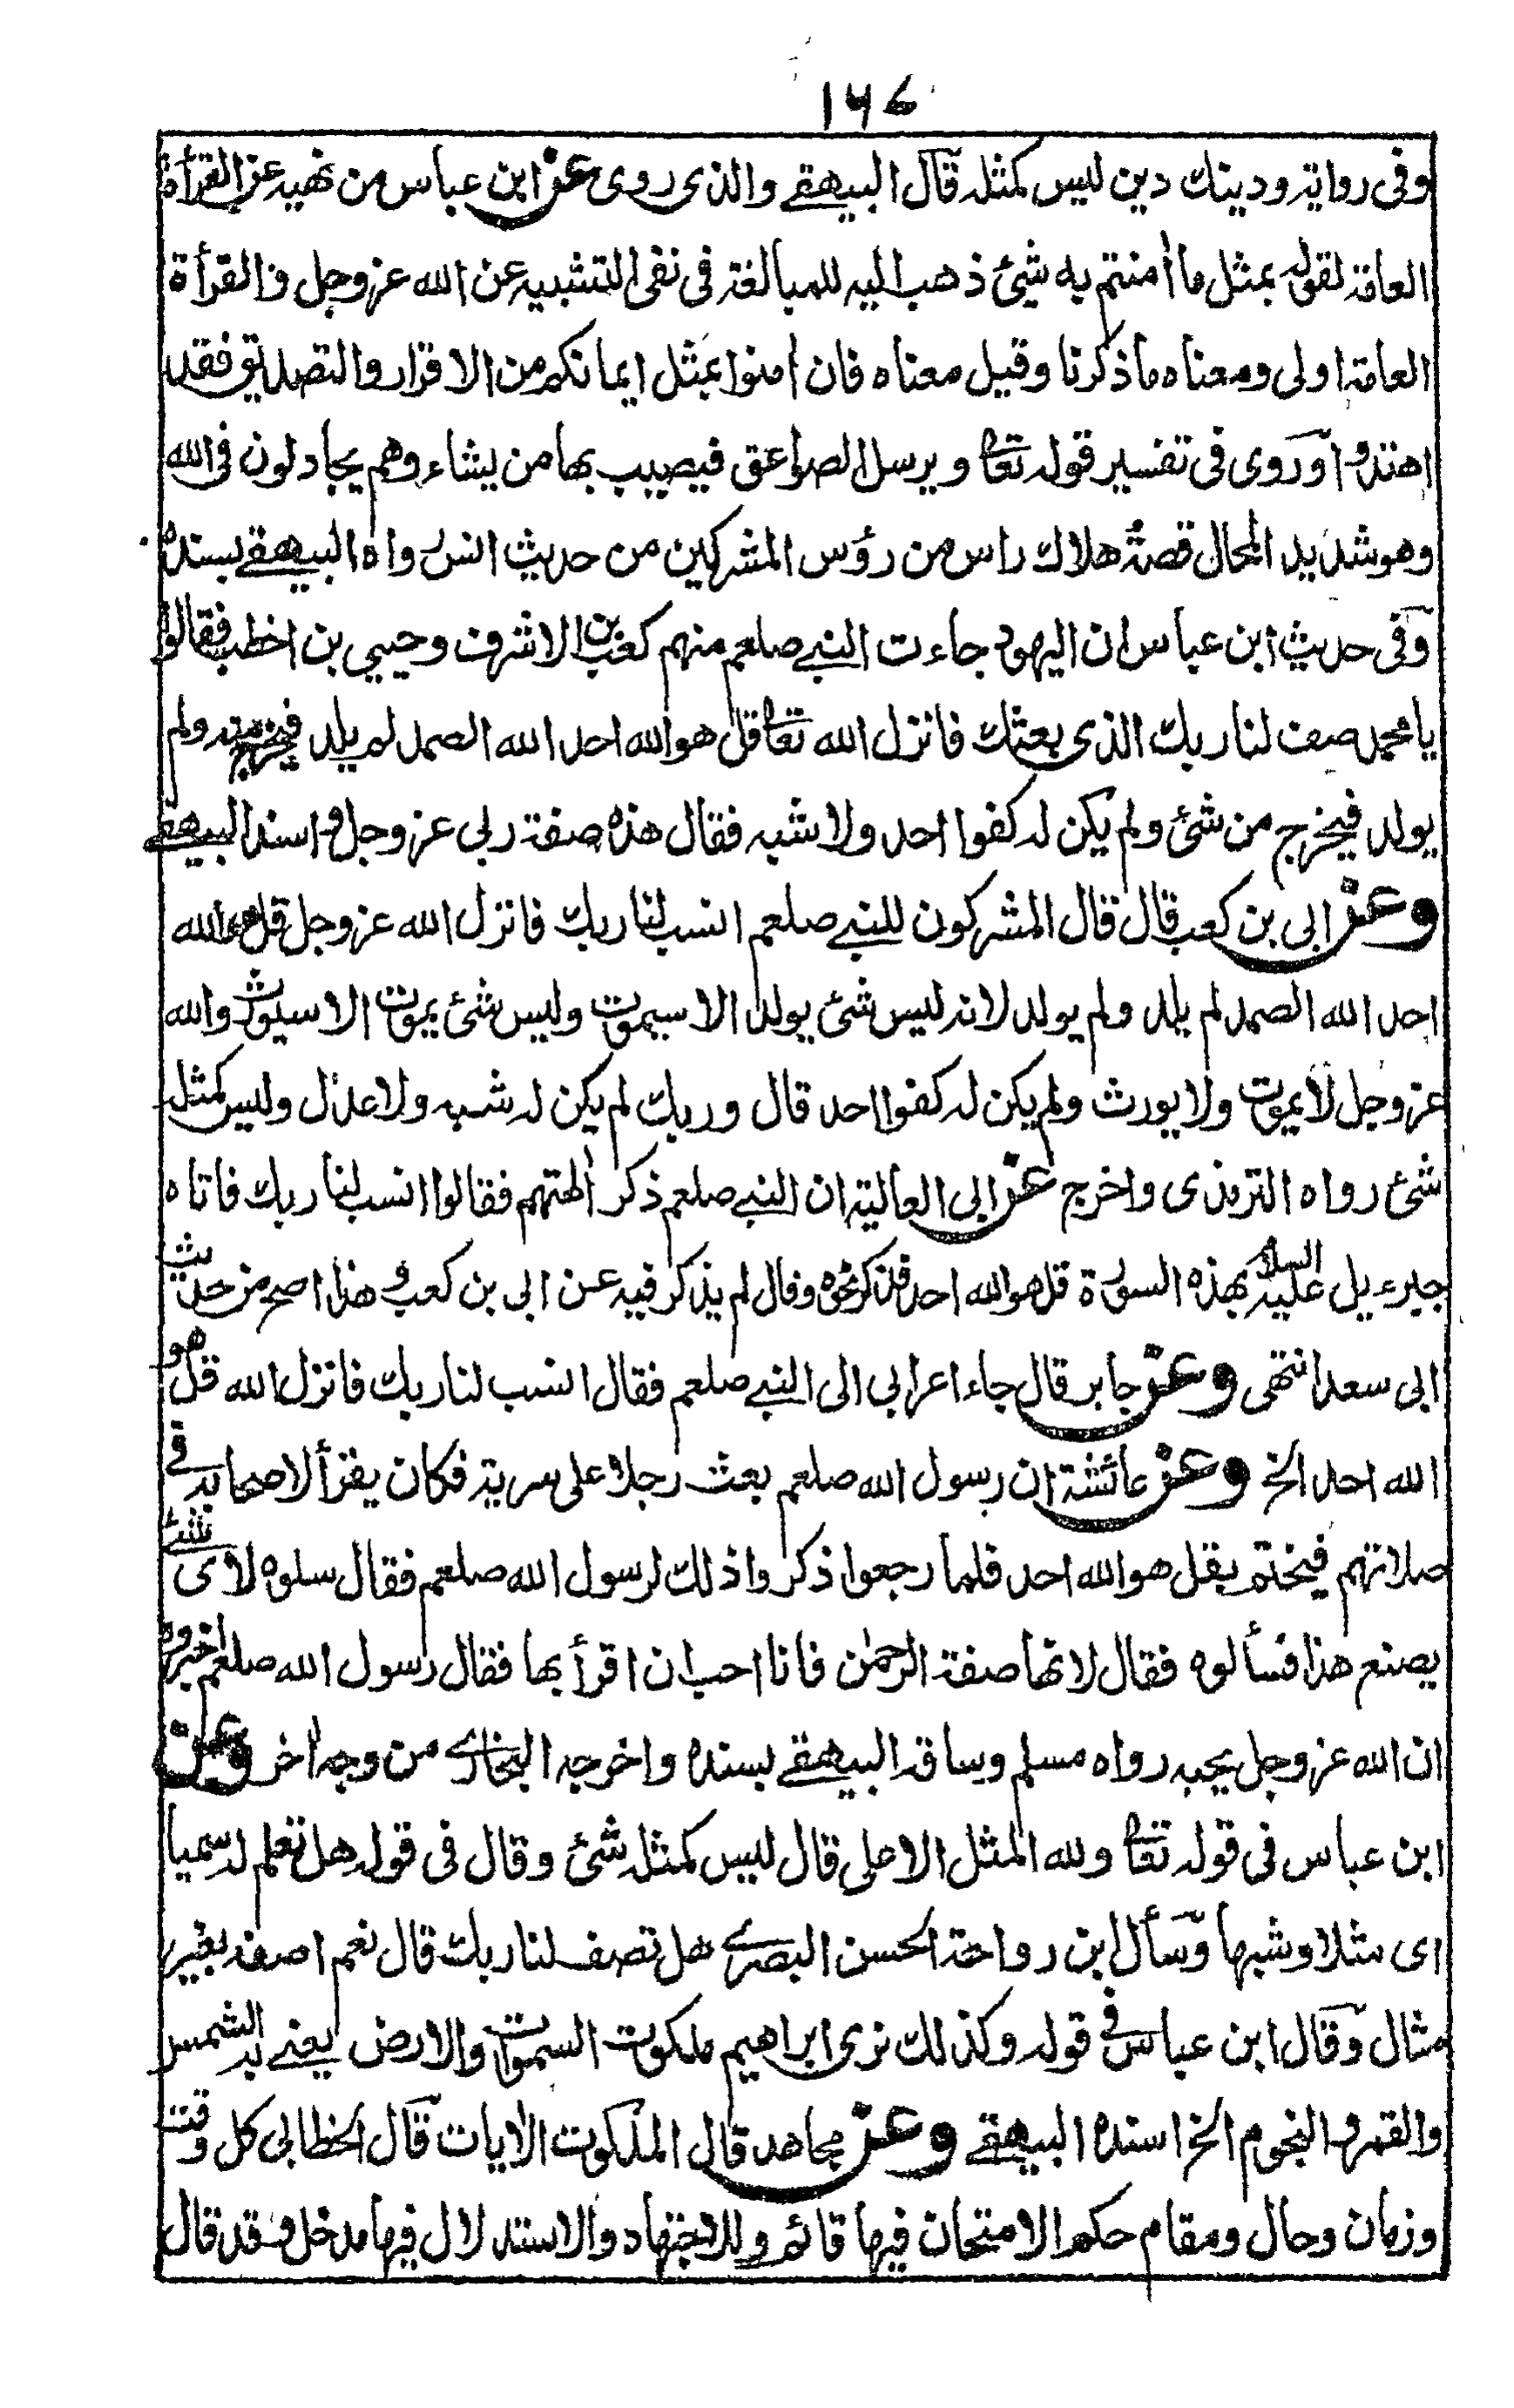 ۱۶۷
وفى رواية ودينك دين ليس كمثله قال البيهقے والذى روى عن ابن عباس من نهيه عن القرأة
العامة لقوله بمثل ما أمنتم به شئ ذهب اليه للمبالغة فى نفى التشبيه عن الله عز وجل والقرأة
العامة اولى ومعناه ما ذكرنا وقيل معناه فان أمنوا بمثل ايمانكم من الاقرار والتصديق فقد
اهتدوا وروى فى تفسير قوله تعالى ويرسل الصواعق فيصيب بها من يشاء وهم يجادلون فى الله
وهو شديد المحال قصة هلاك راس من رؤس المشركين من حديث انس رواه البيهقے بسنده
وفى حديث ابن عباس ان اليهود جاءت النبے صلعم منهم كعب بن الاشرف وحيي بن اخطب فقالوا
يا محمد صف لنا ربك الذى بعثك فانزل الله تعالى قل هو الله احد الله الصمد لم يلد فيخرج منه ولم
يولد فيخرج من شئ ولم يكن له كفوا احد ولا شبه فقال هذه صفة ربى عز وجل واسند البيهقے
وعن ابى بن كعب قال قال المشركون للنبے صلعم انسب لنا ربك فانزل الله عز وجل قل هو الله
احد الله الصمد لم يلد ولم يولد لانه ليس شئ يولد الا سيموت وليس شئ يموت الا سيورث والله
عز وجل لا يموت ولا يورث ولم يكن له كفوا احد قال وربك لم يكن له شبه ولا عدل وليس كمثله
شئ رواه الترمذى واخرج عن ابى العالية ان النبے صلعم ذكر ألهتهم فقالوا انسب لنا ربك فاتاه
جبرءيل عليه السلام بهذه السورة قل هو الله احد فذكر نحوه وقال لم يذكر فيه عن ابى بن كعب وهذا اصح من حديث
ابى سعد انتهى وعن جابر قال جاء اعرابى الى النبے صلعم فقال انسب لنا ربك فانزل الله قل هو
الله احد الخ وعن عائشة ان رسول الله صلعم بعث رجلا على سرية فكان يقرأ لاصحابه فى
صلاتهم فيختم بقل هو الله احد فلما رجعوا ذكروا ذلك لرسول الله صلعم فقال سلوه لاى شئ
يصنع هذا فسألوه فقال لانها صفة الرحمن فانا احب ان اقرأ بها فقال رسول الله صلعم اخبروه
ان الله عز وجل يحبه رواه مسلم وساقه البيهقے بسنده واخرجه البخارے من وجه أخر وعن
ابن عباس فى قوله تعالى ولله المثل الاعلى قال ليس كمثله شئ وقال فى قوله هل تعلم له سميا
اى مثلا وشبها وسأل ابن رواحة الحسن البصرے هل تصف لنا ربك قال نعم اصفه بغير
مثال وقال ابن عباس فى قوله وكذلك نرى ابراهيم ملكوت السموات والارض يعنے به الشمس
والقمر والنجوم الخ اسنده البيهقے وعن مجاهد قال الملكوت الأيات قال الخطابى كل وقت
وزمان وحال ومقام حكم الامتحان فيها قائم وللاجتهاد والاستدلال فيها مدخل وقد قال